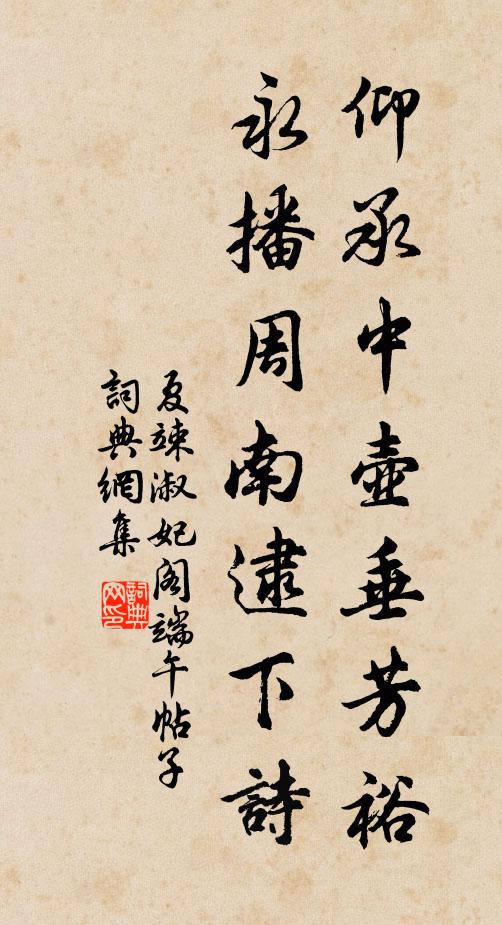 仰承中壺垂芳裕
永播周南逮下詩
夏竦淑妃阁端午帖子
詞典網集
詞典网印